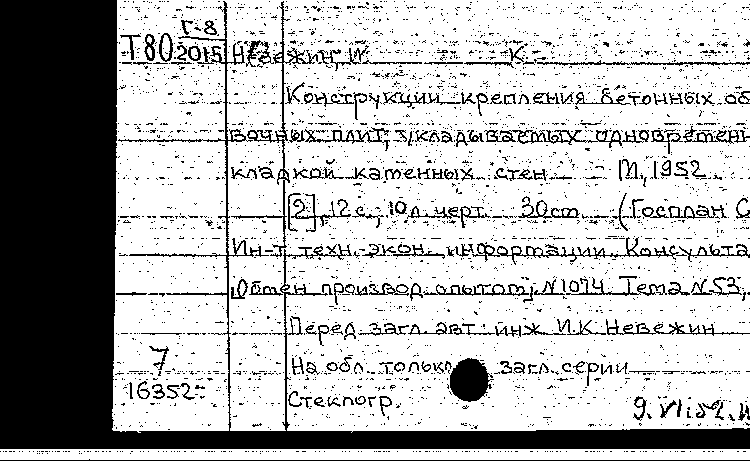 Г-8
Т80 2015 Невежин, И. К.
Конструкции крепления бетонных об
вочных плит, укладываемых одновремен
кладкой каменных стен М, 1952
[2], 12 с.; 10 л. черт 30 см (Госплан С
Ин-т техн. экон. информации. Консульта
Обмен производ. опытом; N 1074 Тема N 53,
Перед загл. авт: инж И.К Невежин
На обл. только загл. серии
7
16352
Стеклогр.
9.VI.52.